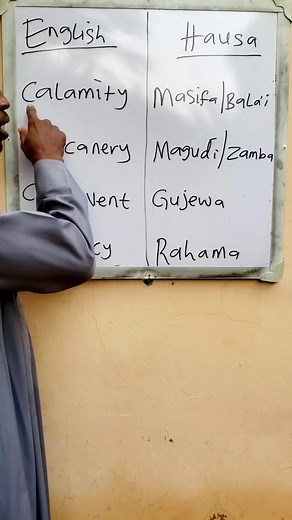 English Hausa
Calamity Masifa/Bala'i
canery Maguɗi/Zamba
Gujewa
Rahama